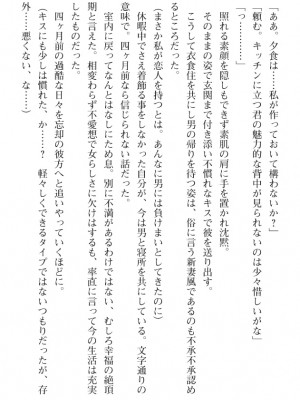 「ああ。夕食は……私が作っておいて構わないか?」
「頼む。キッチンに立つ君の魅力的な背中が見られないのは少々惜しいがな」
「っ……」
照れる素顔を隠しもできず素肌の肩に手を置かれ沈黙。
そのままの姿で玄関まで付き添い不慣れなキスで彼を送り出す。
こうして衣食住を共にし男の帰りを待つ姿は、俗に言う新妻風であるのも不承不承認め
るところだった。
(まさか私が恋人を持つとは。あんなに男には負けまいとしてきたのに)
休暇中でさえ着飾る事をしなかった自分が、今は男と寝所を共にしている。文字通りの
意味で。四ヶ月前なら信じられない話だった。
室内に戻ってなんとはなしにため息。別に不満があるわけではない、むしろ幸福の絶頂
期と言えた。相変わらず不愛想で女らしさに欠けはするも、率直に言って今の生活は充実
したものだった。
四ヶ月前の過酷な日々を忘却の彼方へと追いやっていくほどに。
(キスにも少しは慣れた、か……? 軽々しくできるタイプではないつもりだったが、存
外……悪くない、な……)